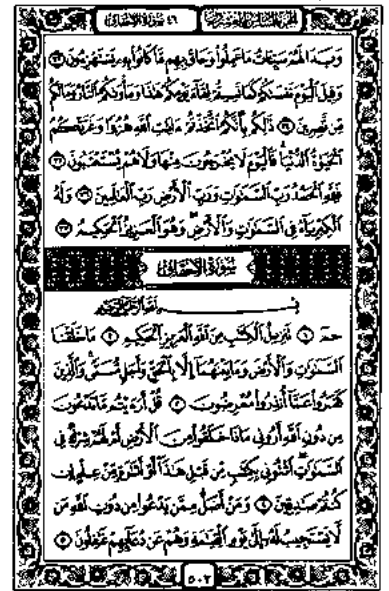 الجزء السادس والعشرون ٤٦ سورة الأحقاف
وَبَدَا لَهُمْ سَيِّئَاتُ مَا عَمِلُوا وَحَاقَ بِهِم مَّا كَانُوا بِهِ يَسْتَهْزِءُونَ ٣٣
وَقِيلَ الْيَوْمَ نَنسَىٰكُمْ كَمَا نَسِيتُمْ لِقَاءَ يَوْمِكُمْ هَٰذَا وَمَأْوَىٰكُمُ النَّارُ وَمَا لَكُم
مِّن نَّٰصِرِينَ ٣٤ ذَٰلِكُم بِأَنَّكُمُ اتَّخَذْتُمْ ءَايَٰتِ اللَّهِ هُزُوًا وَغَرَّتْكُمُ
الْحَيَوٰةُ الدُّنْيَا فَالْيَوْمَ لَا يُخْرَجُونَ مِنْهَا وَلَا هُمْ يُسْتَعْتَبُونَ ٣٥
فَلِلَّهِ الْحَمْدُ رَبِّ السَّمَٰوَٰتِ وَرَبِّ الْأَرْضِ رَبِّ الْعَٰلَمِينَ ٣٦ وَلَهُ
الْكِبْرِيَاءُ فِي السَّمَٰوَٰتِ وَالْأَرْضِ وَهُوَ الْعَزِيزُ الْحَكِيمُ ٣٧
سُورَةُ الْأَحْقَافِ
بِسْمِ اللَّهِ الرَّحْمَٰنِ الرَّحِيمِ
حمٓ ١ تَنزِيلُ الْكِتَٰبِ مِنَ اللَّهِ الْعَزِيزِ الْحَكِيمِ ٢ مَا خَلَقْنَا
السَّمَٰوَٰتِ وَالْأَرْضَ وَمَا بَيْنَهُمَا إِلَّا بِالْحَقِّ وَأَجَلٍ مُّسَمًّى وَالَّذِينَ
كَفَرُوا عَمَّا أُنذِرُوا مُعْرِضُونَ ٣ قُلْ أَرَءَيْتُم مَّا تَدْعُونَ
مِن دُونِ اللَّهِ أَرُونِي مَاذَا خَلَقُوا مِنَ الْأَرْضِ أَمْ لَهُمْ شِرْكٌ فِي
السَّمَٰوَٰتِ ائْتُونِي بِكِتَٰبٍ مِّن قَبْلِ هَٰذَا أَوْ أَثَٰرَةٍ مِّنْ عِلْمٍ إِن
كُنتُمْ صَٰدِقِينَ ٤ وَمَنْ أَضَلُّ مِمَّن يَدْعُوا مِن دُونِ اللَّهِ مَن
لَّا يَسْتَجِيبُ لَهُ إِلَىٰ يَوْمِ الْقِيَٰمَةِ وَهُمْ عَن دُعَائِهِمْ غَٰفِلُونَ ٥
٥٠٢